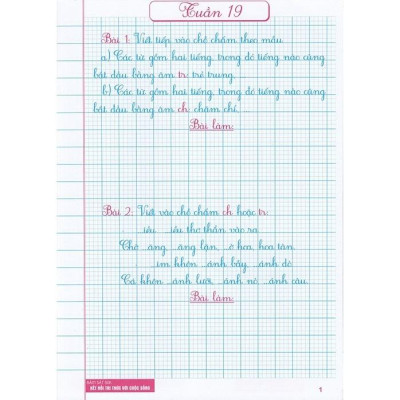 Tuần 19
Bài 1: Viết tiếp vào chỗ chấm theo mẫu.
a) Các từ gồm hai tiếng, trong đó tiếng nào cũng
bắt đầu bằng âm tr: trẻ trung,
b) Các từ gồm hai tiếng, trong đó tiếng nào cũng
bắt đầu bằng âm ch: chăm chỉ,
Bài làm:
Bài 2: Viết vào chỗ chấm ch hoặc tr:
...iều ...iều thơ thẩn vào ra
Chờ ...ăng ...ăng lặn, ...ờ hoa, hoa tàn.
...im khôn ...ánh bẫy ...ánh dò
Cá khôn ...ánh lưới, ...ánh nò, ...ánh câu.
Bài làm:
KẾT NỐI TRI THỨC VỚI CUỘC SỐNG
1